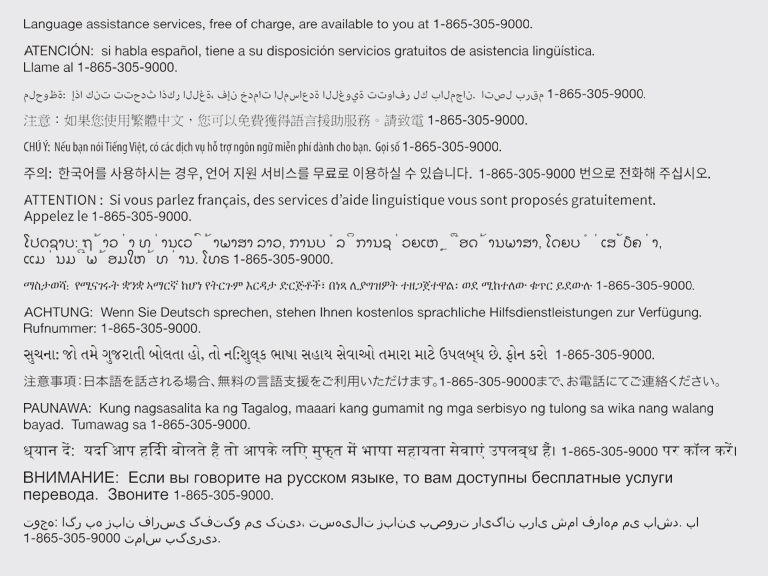 Language assistance services, free of charge, are available to you at 1-865-305-9000.
ATENCIÓN: si habla español, tiene a su disposición servicios gratuitos de asistencia lingüística.
Llame al 1-865-305-9000.
ملحوظة: إذا كنت تتحدث اذكر اللغة، فإن خدمات المساعدة اللغوية تتوافر لك بالمجان. اتصل برقم 1-865-305-9000.
注意：如果您使用繁體中文，您可以免費獲得語言援助服務。請致電 1-865-305-9000.
CHÚ Ý: Nếu bạn nói Tiếng Việt, có các dịch vụ hỗ trợ ngôn ngữ miễn phí dành cho bạn. Gọi số 1-865-305-9000.
주의: 한국어를 사용하시는 경우, 언어 지원 서비스를 무료로 이용하실 수 있습니다. 1-865-305-9000 번으로 전화해 주십시오.
ATTENTION : Si vous parlez français, des services d'aide linguistique vous sont proposés gratuitement.
Appelez le 1-865-305-9000.
ໂປດຊາບ: ຖ້າວ່າ ທ່ານເວົ້າພາສາ ລາວ, ການບໍລິການຊ່ວຍເຫຼືອດ້ານພາສາ, ໂດຍບໍ່ເສັຽຄ່າ,
ແມ່ນມີພ້ອມໃຫ້ທ່ານ. ໂທຣ 1-865-305-9000.
ማስታወሻ: የሚናገሩት ቋንቋ ኣማርኛ ከሆነ የትርጉም እርዳታ ድርጅቶች፣ በነጻ ሊያግዝዎት ተዘጋጀተዋል፡ ወደ ሚከተለው ቁጥር ይደውሉ 1-865-305-9000.
ACHTUNG: Wenn Sie Deutsch sprechen, stehen Ihnen kostenlos sprachliche Hilfsdienstleistungen zur Verfügung.
Rufnummer: 1-865-305-9000.
સુચના: જો તમે ગુજરાતી બોલતા હો, તો નિ:શુલ્ક ભાષા સહાય સેવાઓ તમારા માટે ઉપલબ્ધ છે. ફોન કરો 1-865-305-9000.
注意事項：日本語を話される場合、無料の言語支援をご利用いただけます。1-865-305-9000まで、お電話にてご連絡ください。
PAUNAWA: Kung nagsasalita ka ng Tagalog, maaari kang gumamit ng mga serbisyo ng tulong sa wika nang walang
bayad. Tumawag sa 1-865-305-9000.
ध्यान दें: यदि आप हिंदी बोलते हैं तो आपके लिए मुफ्त में भाषा सहायता सेवाएं उपलब्ध हैं। 1-865-305-9000 पर कॉल करें।
ВНИМАНИЕ: Если вы говорите на русском языке, то вам доступны бесплатные услуги
перевода. Звоните 1-865-305-9000.
توجه: اگر به زبان فارسی گفتگو می کنید، تسهیلات زبانی بصورت رایگان برای شما فراهم می باشد. با
1-865-305-9000 تماس بگیرید.